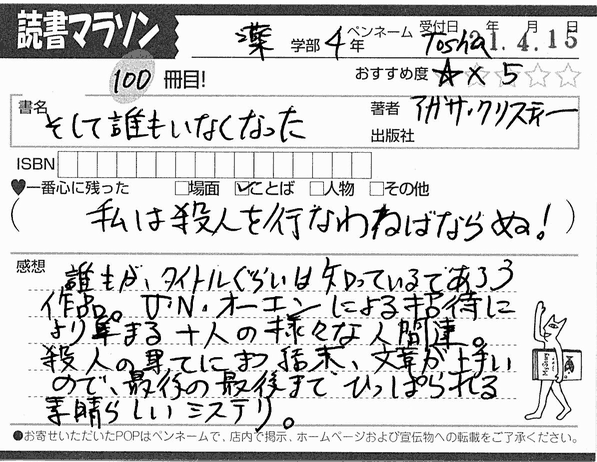 読書マラソン
薬 学部 4年 ペンネーム Tosha 受付日 年 月 日
21.4.15
100 冊目! おすすめ度 ☆×5 ☆☆☆☆
書名 そして誰もいなくなった 著者 アガサ・クリスティー
出版社
ISBN
♥一番心に残った □場面 ☑ことば □人物 □その他
(私は殺人を行なわねばならぬ!)
感想 誰もが、タイトルぐらいは知っているであろう
作品。U・N・オーエンによる招待に
より集まる十人の様々な人間達。
殺人の果てにまつ結末、文章が上手い
ので、最後の最後までひっぱられる
素晴らしいミステリ。
●お寄せいただいたPOPはペンネームで、店内で掲示、ホームページおよび宣伝物への転載をご了承ください。